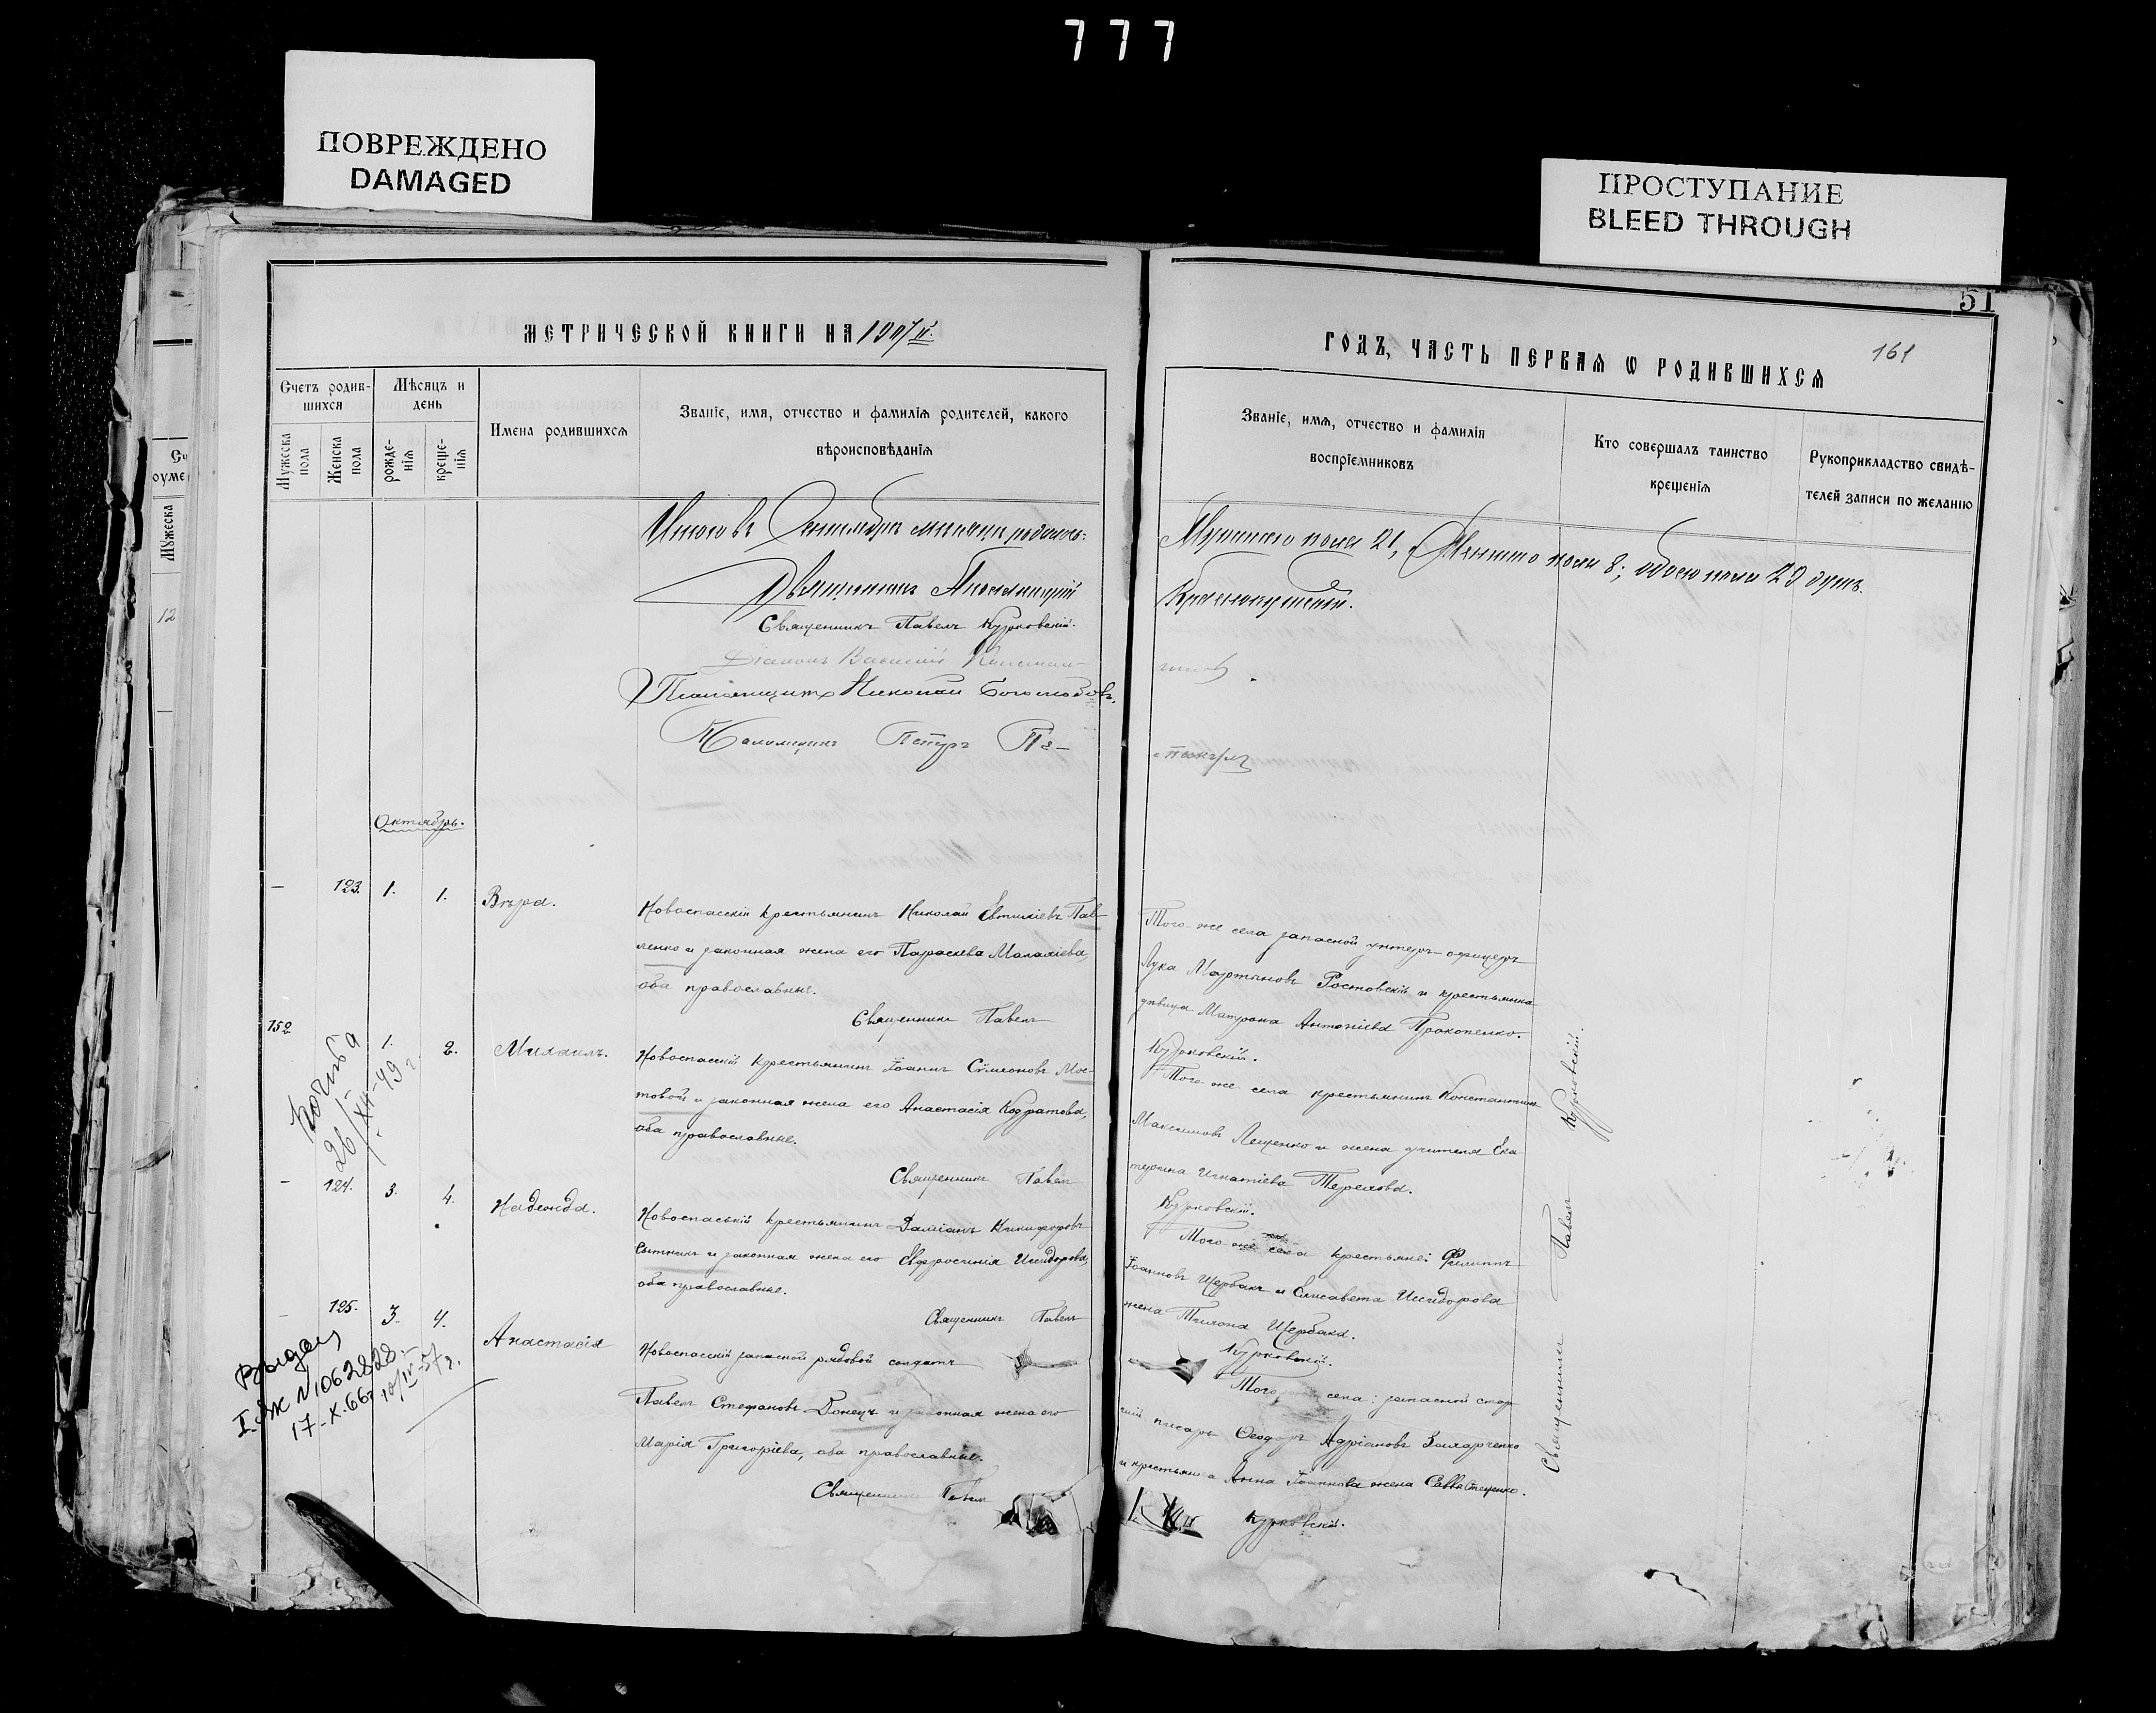 777
ПОВРЕЖДЕНО
DAMAGED
ПРОСТУПАНИЕ
BLEED THROUGH
51
161
МЕТРИЧЕСКОЙ КНИГИ НА 1907й.
ГОДЪ, ЧАСТЬ ПЕРВАЯ Ѡ РОДИВШИХСЯ
Счетъ родив-
шихся
Мужеска пола
Женска пола
Мѣсяцъ и
день
рожде-
нія
креще-
нія
Имена родившихся
Званіе, имя, отчество и фамилія родителей, какого
вѣроисповѣданія
Званіе, имя, отчество и фамилія
воспріемниковъ
Кто совершалъ таинство
крещенія
Рукоприкладство свидѣ-
телей записи по желанію
Мужеска
12
Итого въ Сентябрѣ мѣсяцѣ родилось:
Мужеского пола 21, Женского пола 8; обоего пола 29 душъ.
Священникъ
Священникъ Павелъ Курковскій.
Діаконъ Василій
Псаломщикъ Николай Богослововъ.
Псаломщикъ Петръ Пе-
Октябрь.
—
123.
1.
1.
Вѣра.
Новоспасскій крестьянинъ Николай Евтихіевъ Пав-
ленко и законная жена его Параскева Малахіева,
оба православные.
Священникъ Павелъ
Того-же села запасной унтеръ-офицеръ
Лука Мартиновъ Ростовскій и крестьянка
дѣвица Матрона Антоніева Прокопенко.
Курковскій.
152
1.
2.
Михаилъ.
Новоспасскій крестьянинъ Іоаннъ Сѵмеоновъ Мос-
товой и законная жена его Анастасія Кодратова,
оба православные.
Священникъ Павелъ
Того-же села крестьянинъ Константинъ
Максимовъ Лещенко и жена учителя Ека-
терина Игнатіева Терехова.
Курковскій.
26/XII-49 г.
—
124.
3.
4.
Надежда.
Новоспаський крестьянинъ Даміанъ Никифоровъ
Сытникъ и законная жена его Евфросинія Исидорова,
оба православные.
Священникъ Павелъ
Того-же села крестьяне: Филиппъ
Іоанновъ Щербакъ и Елисавета Исидорова
жена Тихона Щербака.
Курковскій.
—
125.
3.
4.
Анастасія
Новоспасскій запасной рядовой солдатъ
Павелъ Стефановъ Донецъ и законная жена его
Марія Григоріева, оба православные.
Священникъ Павелъ
Того села: запасной стар-
шій писарь Ѳеодоръ Адріановъ Захарченко
и крестьянка Анна Іоаннова жена Саввы Стеценко.
Курковскій.
I-ЯЖ №1062828
17-X.66г.
Священникъ Павелъ Курковскій.